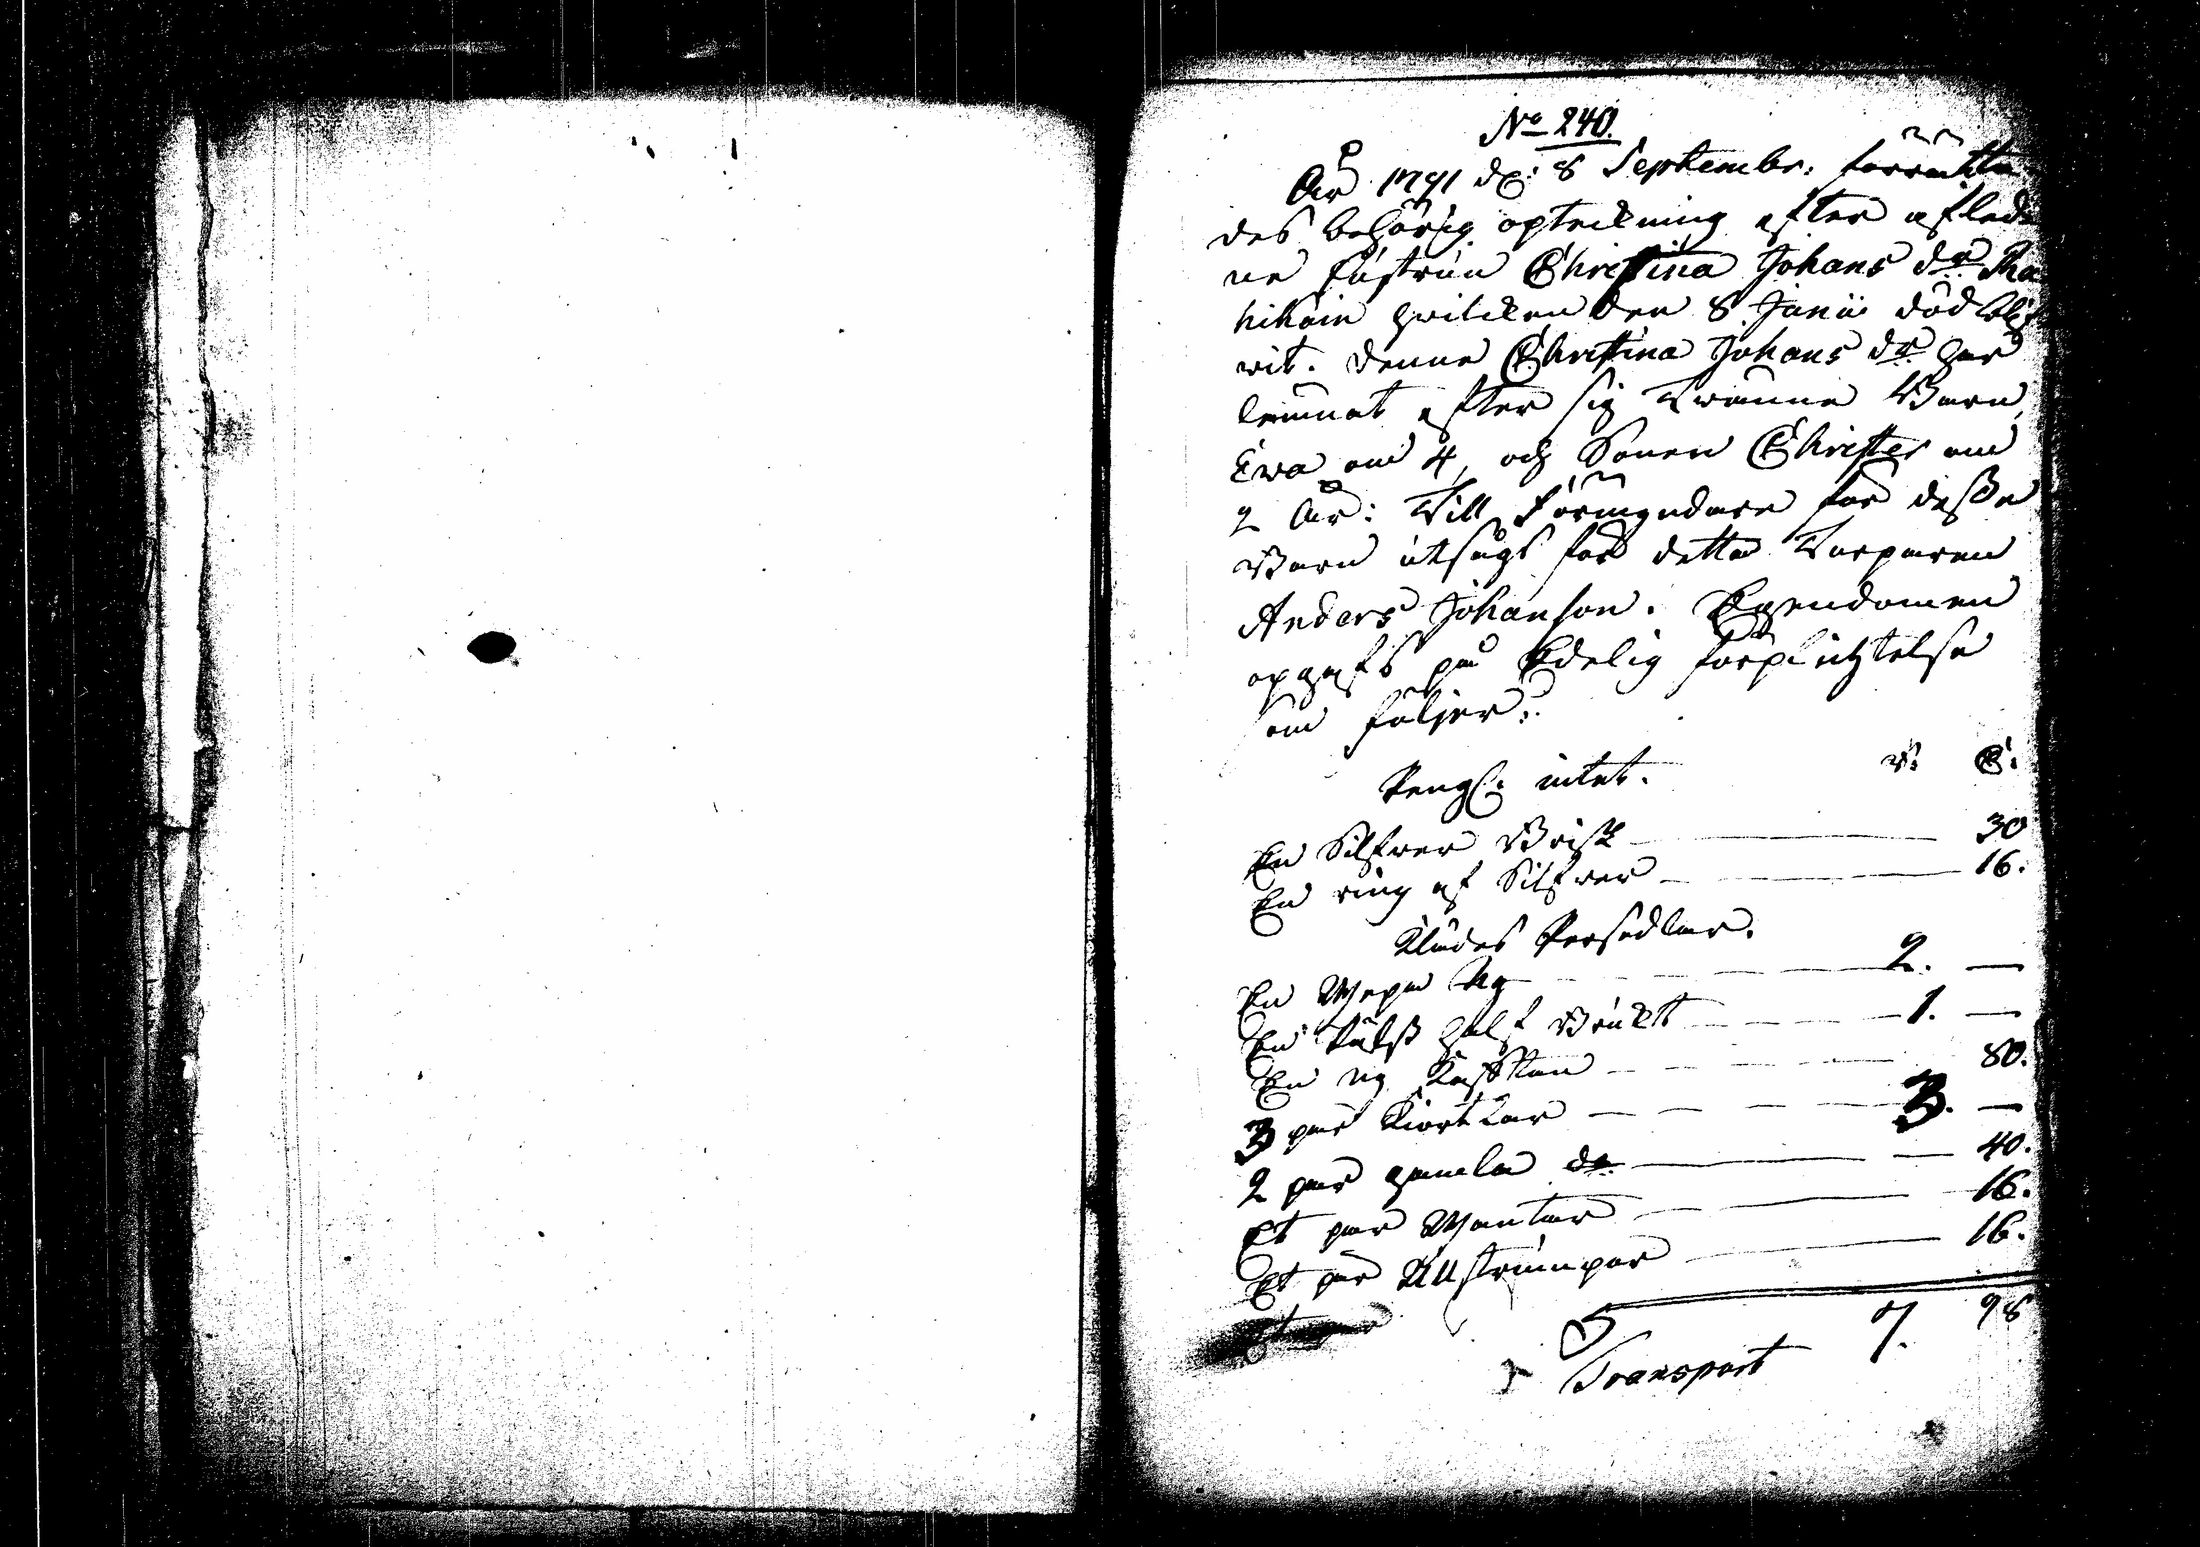 No 240.
År 1791 d: 8 Septembr. förrätta
des behörig opteckning efter afled
ne hustrun Christina Johans dr
hvilcken den 8 Junii död blif
vit. Denne Christina Johans dr har
lemnat efter sig Tvänne Barn,
Ewa om 4, och Sonen Christer om
2 år: Till Förmyndare för desse
Barn utsågs för detta Torparen
Anders Johanson. Egendomen
opgafs på Edelig förplichtelse
som följer:
Peng: intet. r: S:
En Silfver Brisk 30
En ring af Silfver 16.
Klädes Persedlar.
En ny 2. —
En half Brukt 1. —
En ny Kofftan 80.
3 par Kiortlar 3. —
2 par gamla do 40.
Et par Wantar 16.
Et par Ullstrumpor 16.
Transport 7. 98